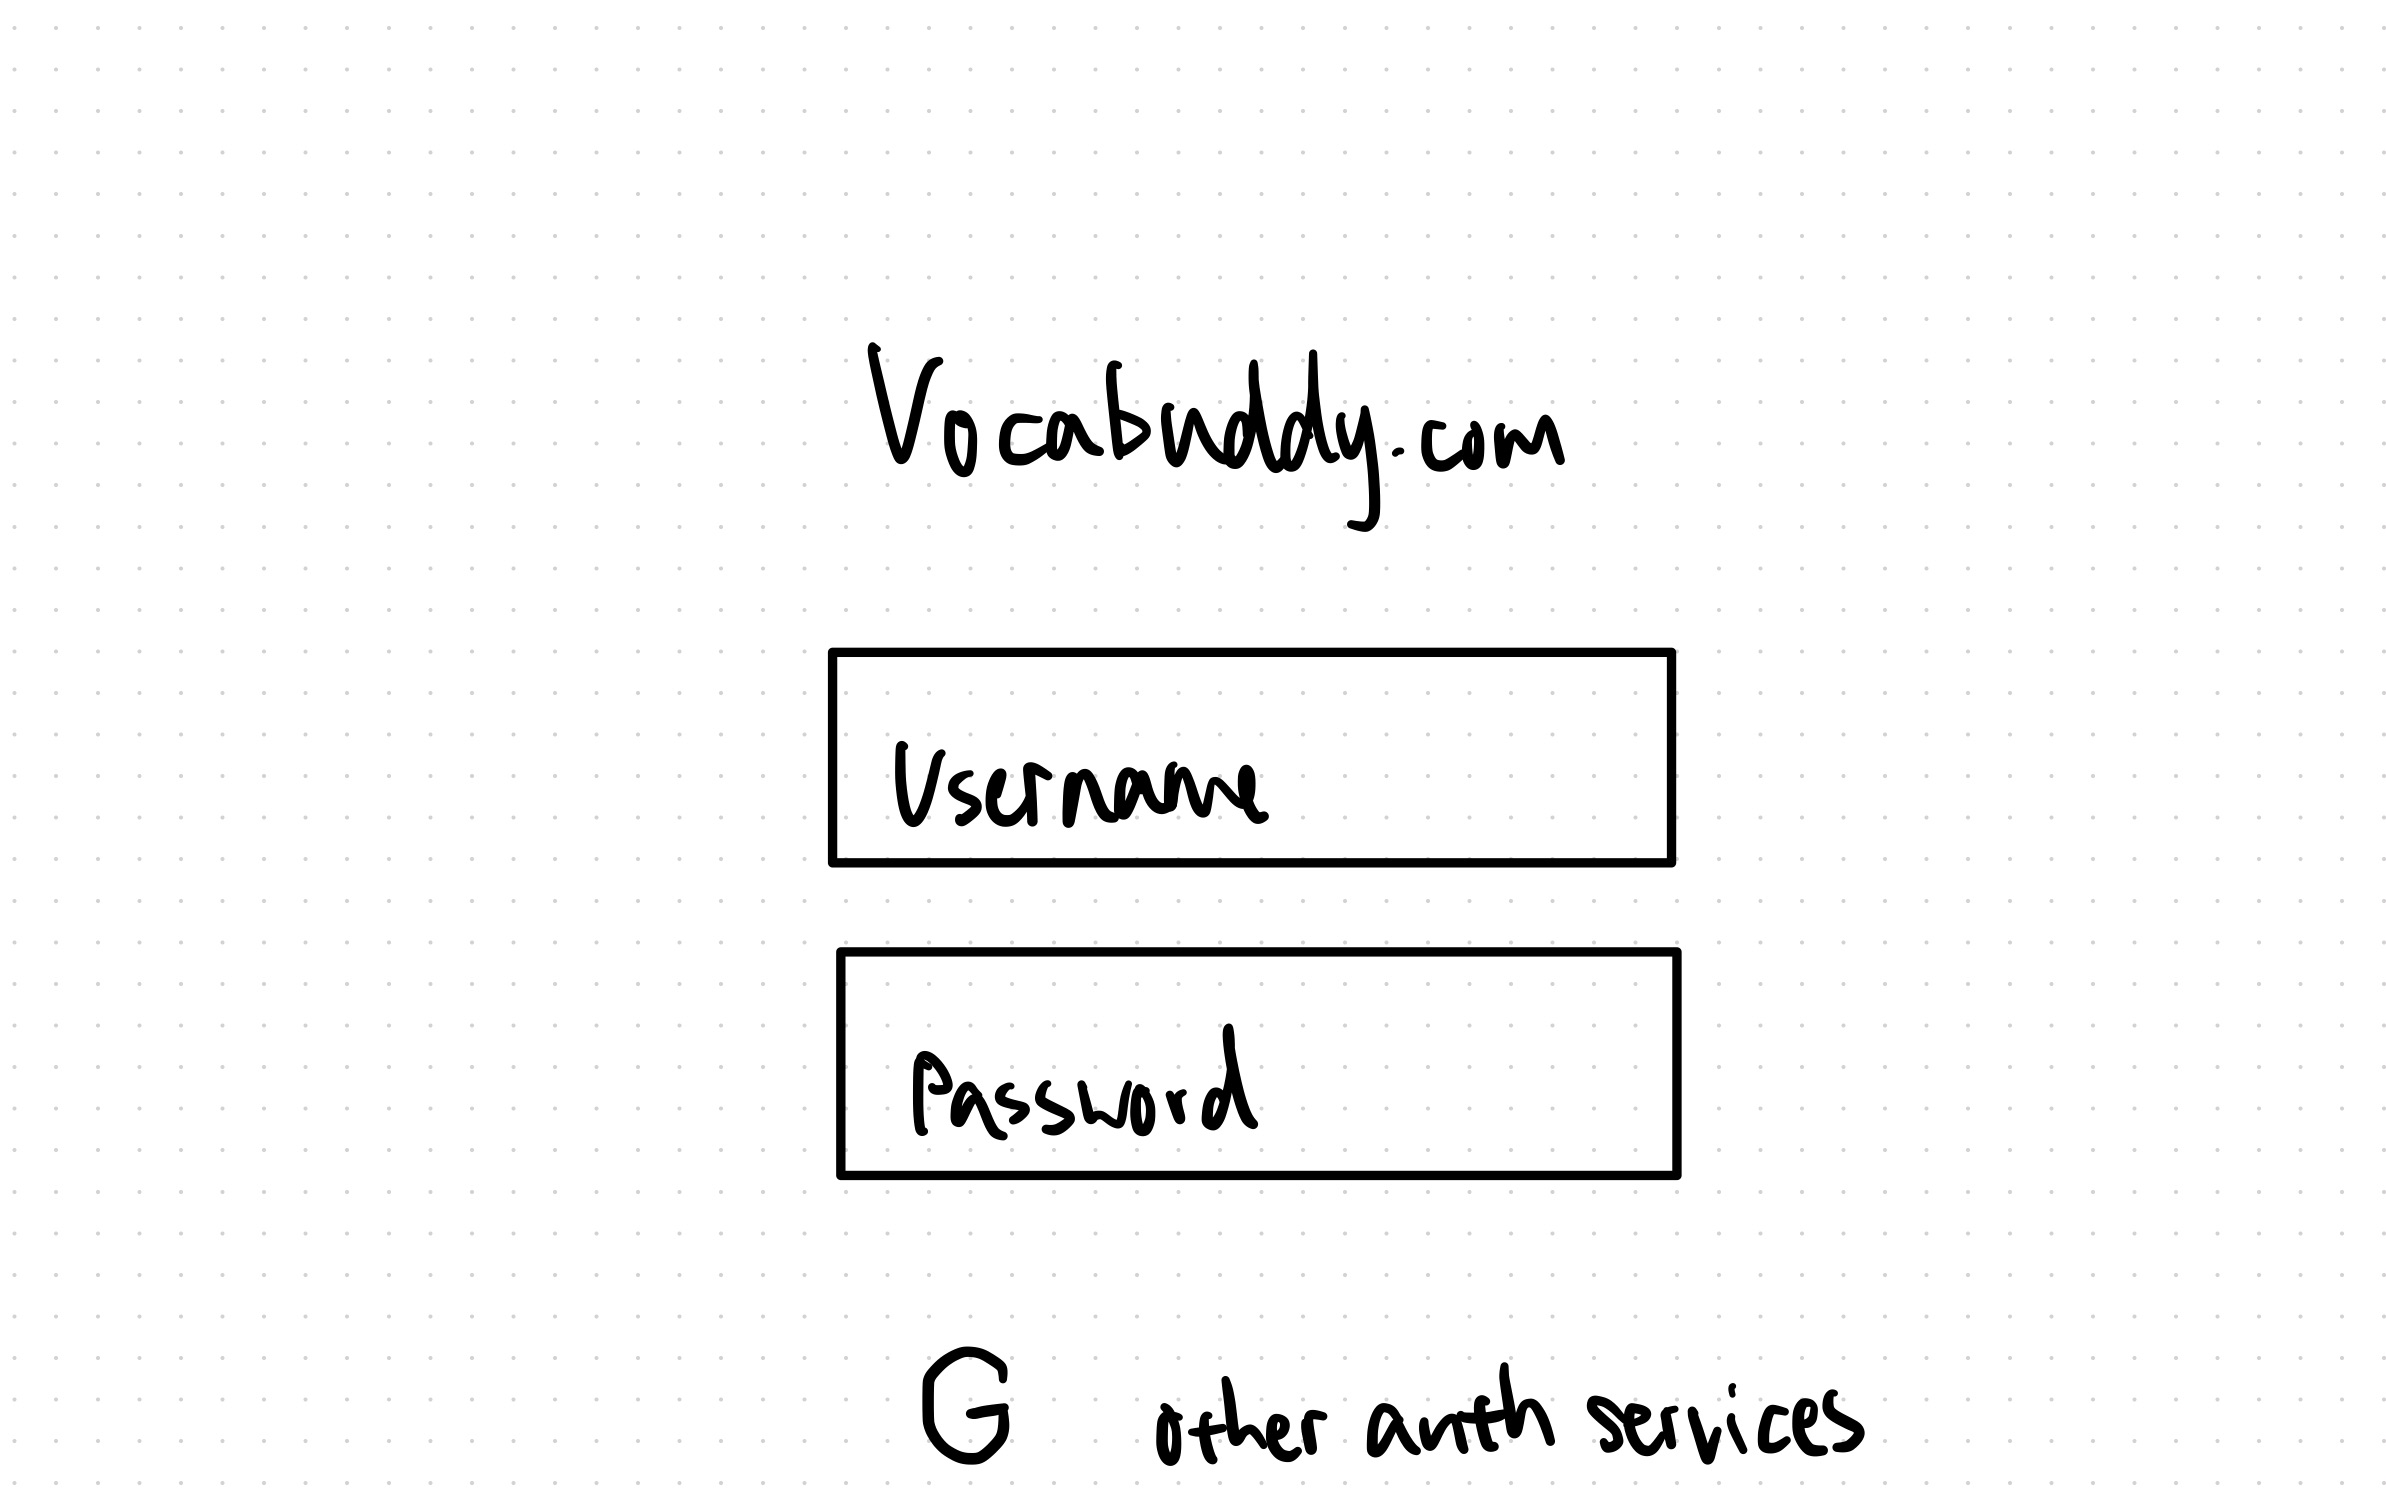 Vocabuddy.com
Username
Password
G other auth services